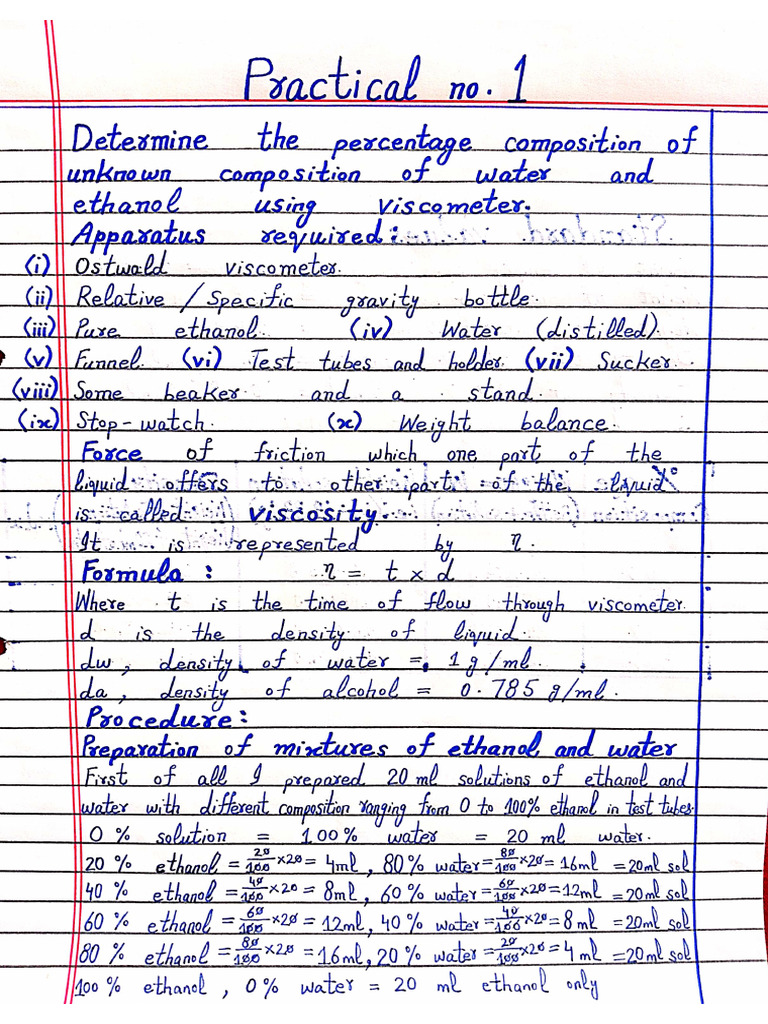 Practical no. 1
Determine the percentage composition of
unknown composition of water and
ethanol using viscometer.
Apparatus required:
(i) Ostwald viscometer.
(ii) Relative / Specific gravity bottle.
(iii) Pure ethanol. (iv) Water (distilled).
(v) Funnel. (vi) Test tubes and holder. (vii) Sucker.
(viii) Some beaker and a stand.
(ix) Stop-watch. (x) Weight balance.
Force of friction which one part of the
liquid offers to other part of the liquid
is called viscosity.
It is represented by η.
Formula : η = t × d
Where t is the time of flow through viscometer.
d is the density of liquid.
dw, density of water = 1 g/ml.
da, density of alcohol = 0.785 g/ml.
Procedure:
Preparation of mixtures of ethanol and water
First of all I prepared 20 ml solutions of ethanol and
water with different composition ranging from 0 to 100% ethanol in test tubes.
0 % solution = 100 % water = 20 ml water.
20 % ethanol = 20/100 × 20 = 4ml, 80 % water = 80/100 × 20 = 16ml = 20ml sol
40 % ethanol = 40/100 × 20 = 8ml, 60 % water = 60/100 × 20 = 12ml = 20ml sol
60 % ethanol = 60/100 × 20 = 12ml, 40 % water = 40/100 × 20 = 8 ml = 20ml sol
80 % ethanol = 80/100 × 20 = 16ml, 20 % water = 20/100 × 20 = 4 ml = 20ml sol
100 % ethanol, 0 % water = 20 ml ethanol only